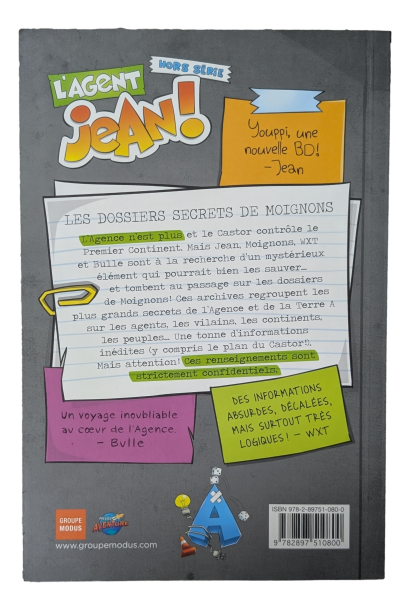 L'AGENT
JEAN!
HORS SÉRIE
Youppi, une
nouvelle BD!
-Jean
LES DOSSIERS SECRETS DE MOIGNONS
L'Agence n'est plus et le Castor contrôle le
Premier Continent. Mais Jean, Moignons, WXT
et Bulle sont à la recherche d'un mystérieux
élément qui pourrait bien les sauver...
et tombent au passage sur les dossiers
de Moignons! Ces archives regroupent les
plus grands secrets de l'Agence et de la Terre A
sur les agents, les vilains, les continents,
les peuples... Une tonne d'informations
inédites (y compris le plan du Castor!).
Mais attention! Ces renseignements sont
strictement confidentiels.
Un voyage inoubliable
au cœur de l'Agence.
- Bulle
DES INFORMATIONS
ABSURDES, DÉCALÉES,
MAIS SURTOUT TRÈS
LOGIQUES! - WXT
A
GROUPE
MODUS
AVENTURE
www.groupemodus.com
ISBN 978-2-89751-080-0
9 782897 510800